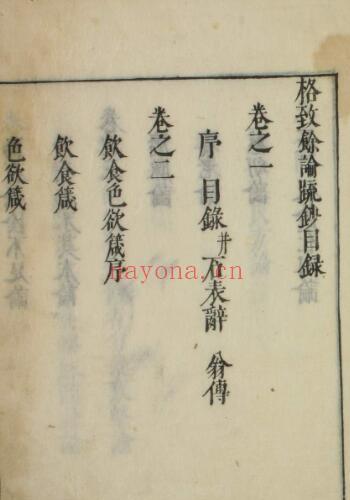 格致餘論疏鈔目録
卷之一
序 目錄并不表辭 翁傳
卷之二
飲食色欲箴序
飲食箴
色欲箴
nayona.cn